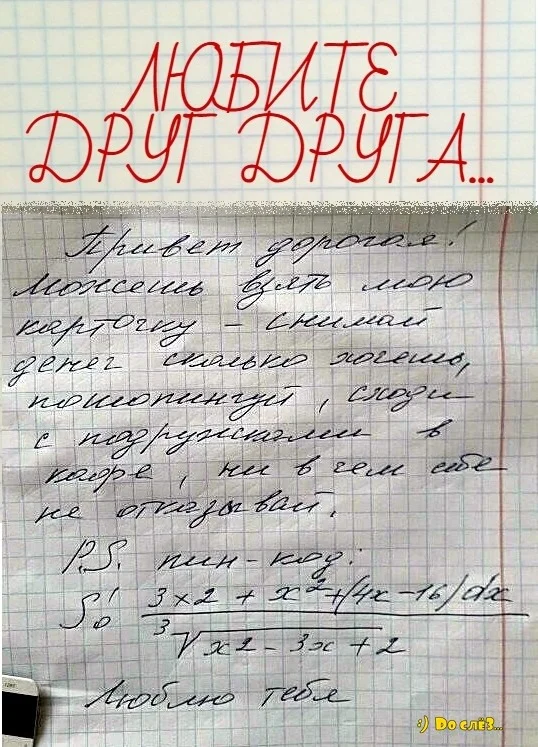 ЛЮБИТЕ
ДРУГ ДРУГА...
Привет дорогая!
Можешь взять мою
карточку - снимай
денег сколько хочешь,
пошопингуй, сходи
с подружками в
кафе, ни в чем себе
не отказывай.
P.S. пин-код:
∫₀¹ 3x2 + x² + (4x - 16) dx
∛x2 - 3x + 2
Люблю тебя
:) До слёз...